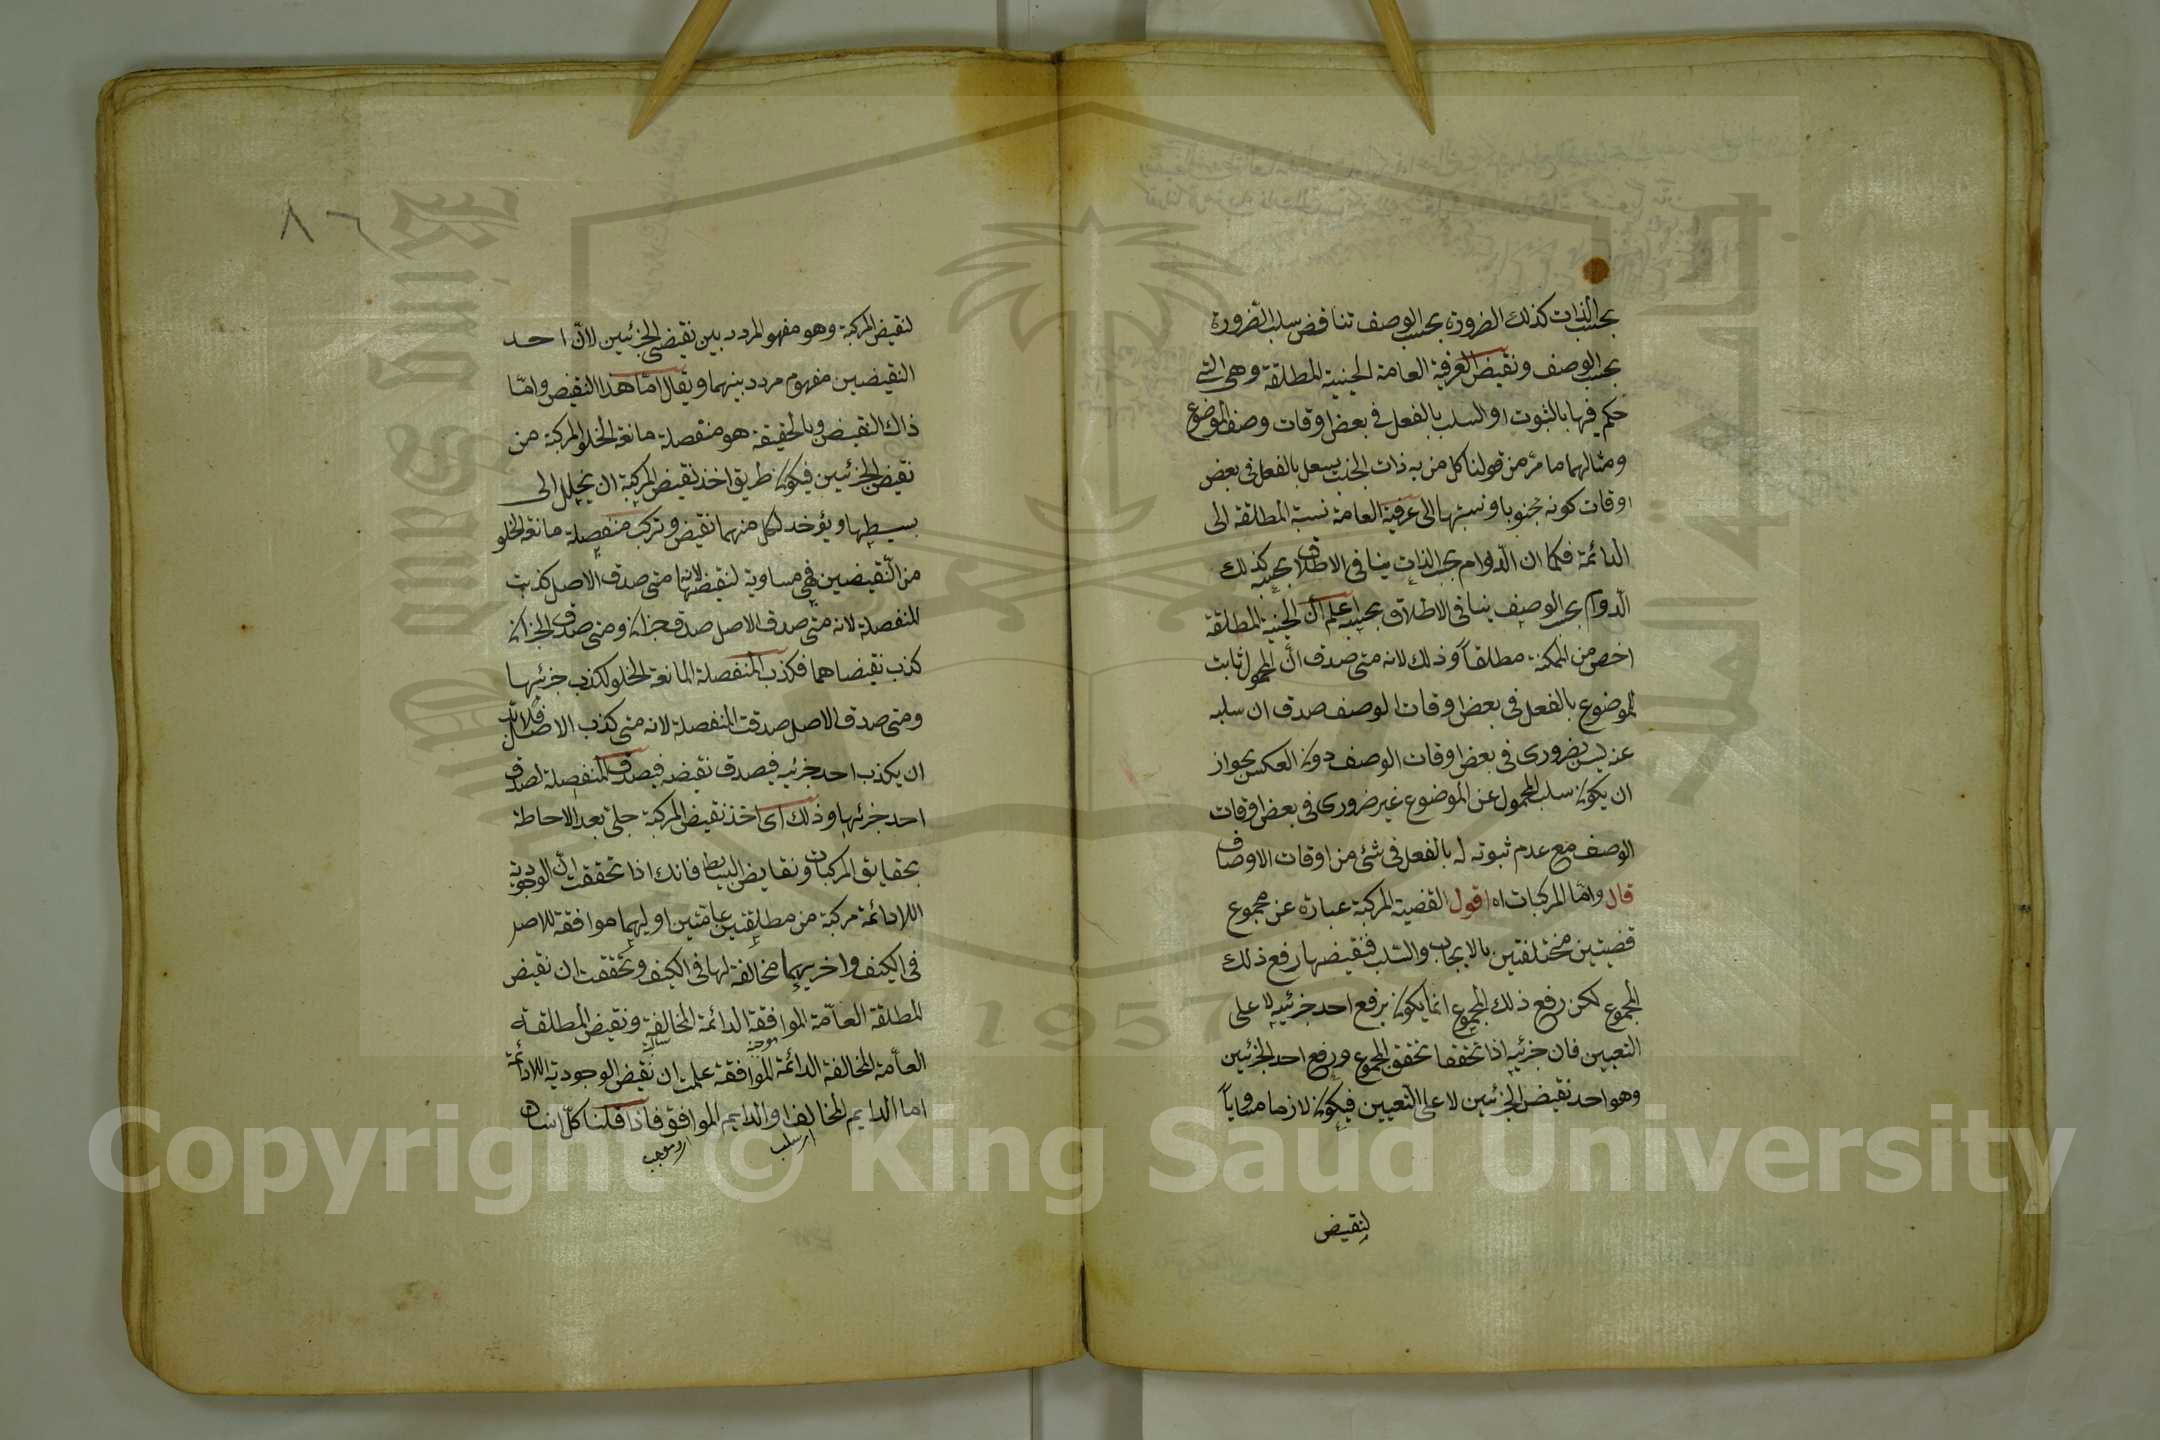 بحسب الذات كذلك الضرورة بحسب الوصف تناقض سلب الضرورة
بحسب الوصف ونقيض العرفية العامة الحينية المطلقة وهى التى
حكم فيها بالثبوت او السلب بالفعل فى بعض اوقات وصف الموضوع
ومثالهما ما مر من قولنا كل من به ذات الجنب يسعل بالفعل فى بعض
اوقات كونه مجنوبا ونسبتها الى عرفية العامة نسبة المطلقة الى
الدائمة فكما ان الدوام بحسب الذات ينافى الاطلاق بحسبه كذلك
الدوام بحسب الوصف ينافى الاطلاق بحسبه اعلم ان الحينية المطلقة
اخص من الممكنة مطلقا وذلك لانه متى صدق ان المحمول ثابت
للموضوع بالفعل فى بعض اوقات الوصف صدق ان سلبه
عنه ليس بضرورى فى بعض اوقات الوصف دون العكس بجواز
ان يكون سلب المحمول عن الموضوع غير ضرورى فى بعض اوقات
الوصف مع عدم ثبوته له بالفعل فى شئ من اوقات الاوصاف
قال واما المركبات اه اقول القضية المركبة عبارة عن مجموع
قضيتين مختلفتين بالايجاب والسلب فنقيضها رفع ذلك
المجموع لكن رفع ذلك المجموع انما يكون برفع احد جزئيه لا على
التعيين فان جزئيه اذا تحققا تحقق المجموع ورفع احد الجزئين
وهو احد نقيض الجزئين لا على التعيين فيكون لازما مساويا
لنقيض
٨٦
لنقيض المركبة وهو مفهو المردد بين نقيضى الجزئين لان احد
النقيضين مفهوم مردد بينهما ويقال اما هذا النقيض واما
ذاك النقيض وبالحقيقة هو منفصلة مانعة الخلو المركبة من
نقيض الجزئين فيكون طريق اخذ نقيض المركبة ان يحلل الى
بسيطها ويؤخد لكل منهما نقيض وتركب منفصلة مانعة الخلو
من النقيضين فهى مساوية لنقيضها لانه متى صدق الاصل كذبت
المنفصلة لانه متى صدق الاصل صدق جزاه ومتى صدق الجزاه
كذب نقيضاهما فكذب المنفصلة المانعة الخلو لكذب جزئيها
ومتى صدق الاصل صدقت المنفصلة لانه متى كذب الاصل فلا بد
ان يكذب احد جزئيه فيصدق نقيضه فيصدق المنفصلة لصدق
احد جزئها وذلك اى اخذ نقيض المركبة جلى بعد الاحاطة
بحقايق المركبات ونقايض البسايط فانك اذا تحققت ان الوجودية
اللادائمة مركبة من مطلقتين عامتين اوليهما موافقة للاصر
فى الكيف واخريهما مخالفة لها فى الكيف وتحققت ان نقيض
المطلقة العامة الموافقة الدائمة المخالفة ونقيض المطلقة
العامة المخالفة الدائمة الموافقة علمت ان نقيض الوجودية اللادائمة
موجبة
سالبة
اما الدايم المخالف او الدايم الموافق فاذا قلنا كل انسان
Copyright © King Saud University
King Saud University
1957